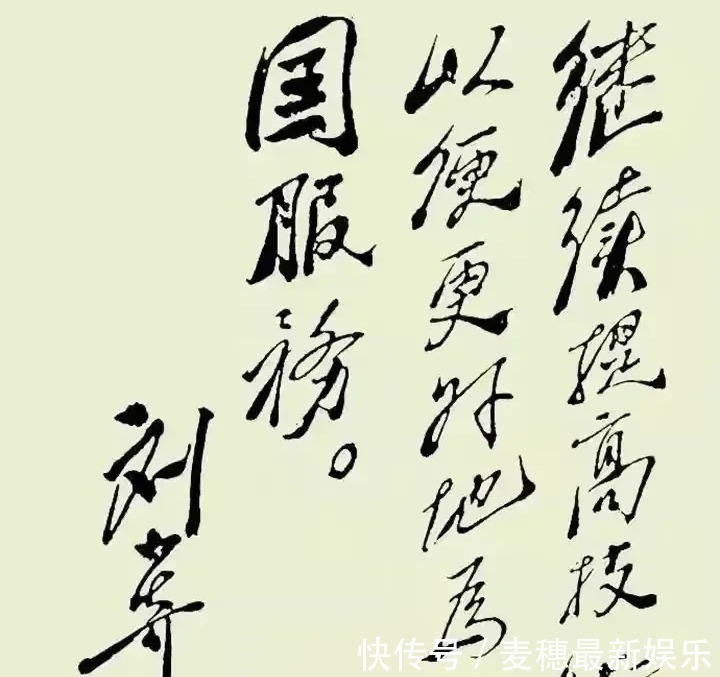 继续提高技
以便更好地为
国服务。
刘少奇
快传号 / 麦穗最新娱乐